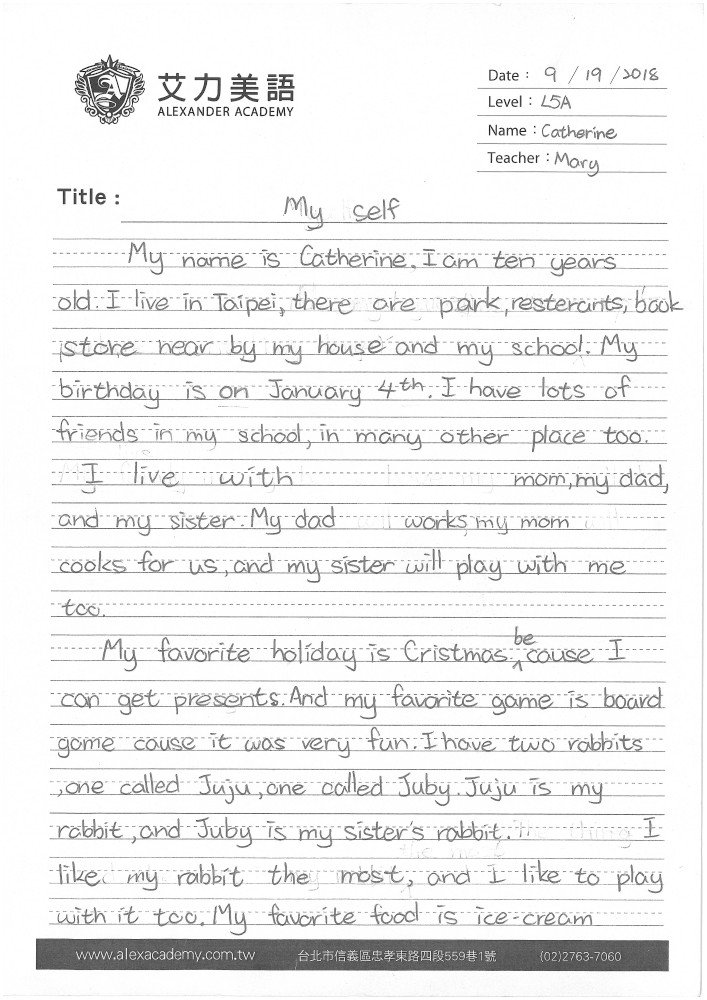 艾力美語
ALEXANDER ACADEMY
Date : 9 / 19 / 2018
Level : L5A
Name : Catherine
Teacher : Mary
Title :
My self
My name is Catherine. I am ten years
old. I live in Taipei, there are park, resterants, book
store near by my house and my school. My
birthday is on January 4th. I have lots of
friends in my school, in many other place too.
I live with mom, my dad,
and my sister. My dad works, my mom
cooks for us, and my sister will play with me
too.
My favorite holiday is Cristmas, because I
can get presents. And my favorite game is board
game cause it was very fun. I have two rabbits
,one called Juju, one called Juby. Juju is my
rabbit, and Juby is my sister's rabbit. I
like my rabbit the most, and I like to play
with it too. My favorite food is ice-cream
www.alexacademy.com.tw 台北市信義區忠孝東路四段559巷1號 (02)2763-7060